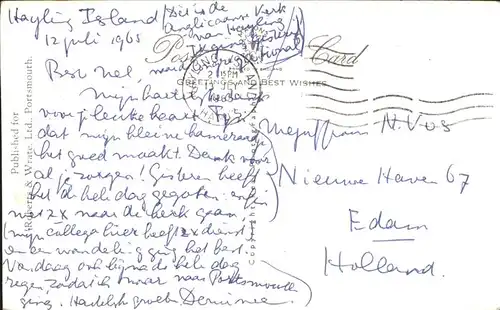 Hayling Island
12 juli 1965
(Dit is de
Anglicaanse Kerk
van Hayling
Ik ging gisteren
naar de congregational
Post Card
GREETINGS AND BEST WISHES
2 15PM
12 JLY
1965
Published for
Wrate, Ltd., Portsmouth.
Copyright
Best Nel,
Mijn hartelijke dank
voor je leuke kaart. Fijn
dat mijn kleine kameraad
het goed maakt. Dank voor
al je zorgen! Gisteren heeft
het de hele dag gegoten en
met 2x naar de kerk gaan
(mijn collega hier heeft 2x dienst)
en een wandeling ging het best.
Vandaag ook bijna de hele dag
regen zodat ik maar naar Portsmouth
ging. Hartelijk groeten
Mejuffrouw N. Vos
Nieuwe Haven 67
Edam
Holland.